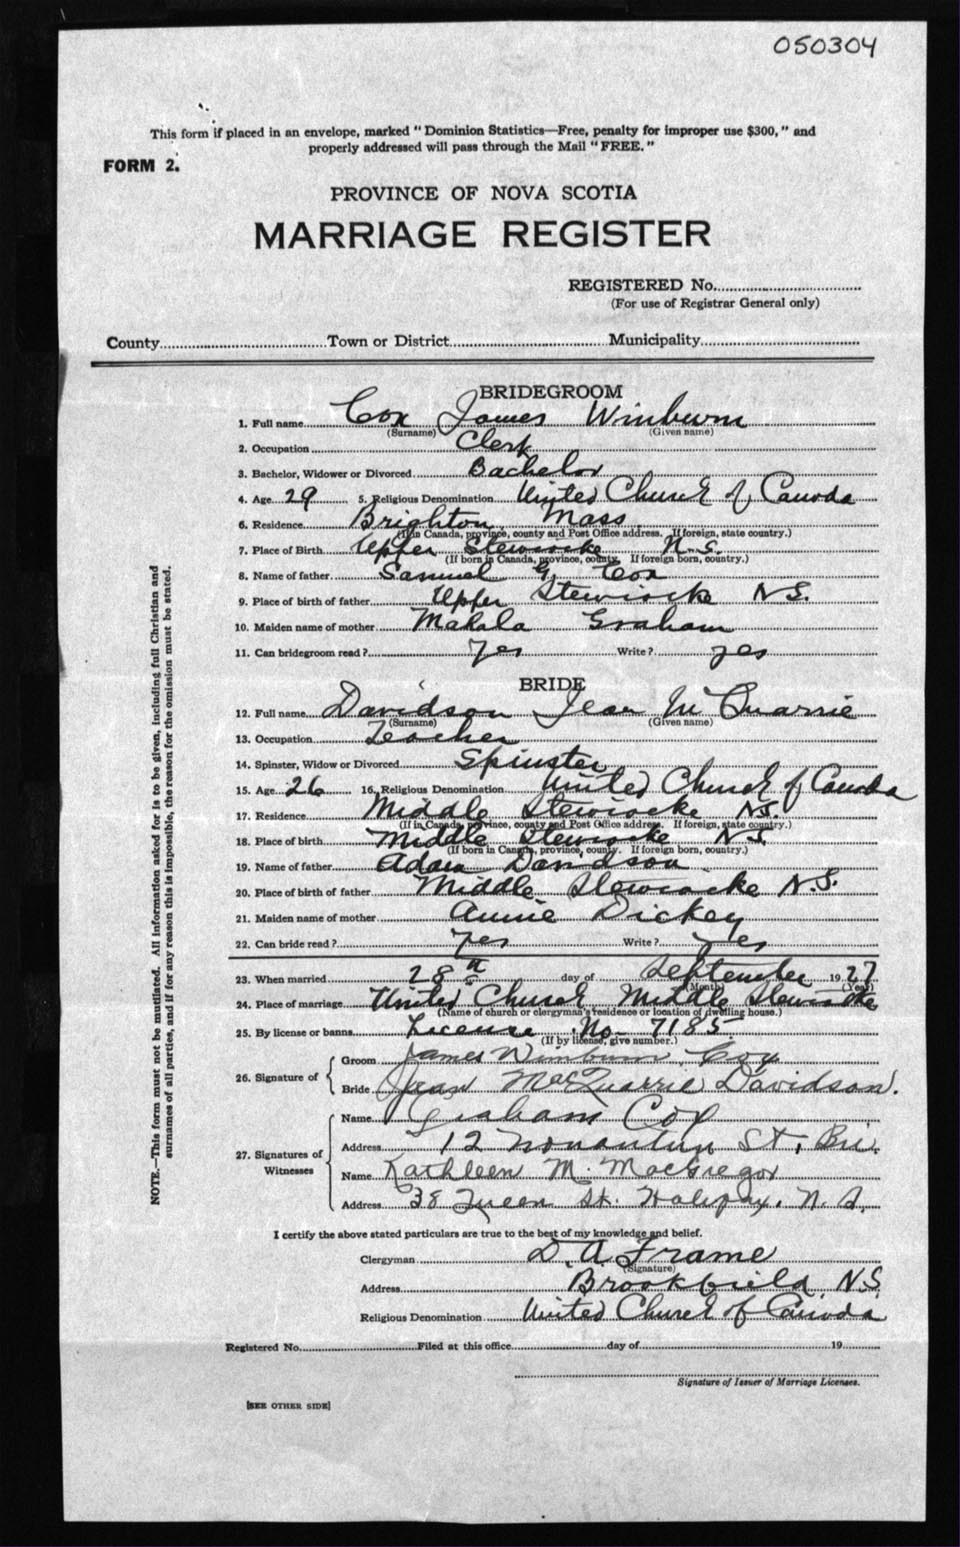 050304
This form if placed in an envelope, marked "Dominion Statistics—Free, penalty for improper use $300," and
properly addressed will pass through the Mail "FREE."
FORM 2.
PROVINCE OF NOVA SCOTIA
MARRIAGE REGISTER
REGISTERED No.
(For use of Registrar General only)
County Town or District Municipality
BRIDEGROOM
1. Full name Cox James Winburn
(Surname) (Given name)
2. Occupation Clerk
3. Bachelor, Widower or Divorced Bachelor
4. Age 29 5. Religious Denomination United Church of Canada
6. Residence Brighton Mass
(If in Canada, province, county and Post Office address. If foreign, state country.)
7. Place of Birth Upper Stewiacke N.S.
(If born in Canada, province, county. If foreign born, country.)
8. Name of father Samuel G. Cox
9. Place of birth of father Upper Stewiacke N.S.
10. Maiden name of mother Mahala Graham
11. Can bridegroom read? Yes Write? yes
BRIDE
12. Full name Davidson Jean McQuarrie
(Surname) (Given name)
13. Occupation Teacher
14. Spinster, Widow or Divorced Spinster
15. Age 26 16. Religious Denomination United Church of Canada
17. Residence Middle Stewiacke N.S.
(If in Canada, province, county and Post Office address. If foreign, state country.)
18. Place of birth Middle Stewiacke N.S.
(If born in Canada, province, county. If foreign born, country.)
19. Name of father Adam Davidson
20. Place of birth of father Middle Stewiacke N.S.
21. Maiden name of mother Annie Dickey
22. Can bride read? Yes Write? Yes
23. When married 28th day of September 1927
(Month) (Year)
24. Place of marriage United Church Middle Stewiacke
(Name of church or clergyman's residence or location of dwelling house.)
25. By license or banns License No 7185
(If by license, give number.)
26. Signature of
Groom James Winburn Cox
Bride Jean MacQuarrie Davidson.
27. Signatures of
Witnesses
Name Graham Cox
Address 12 Nonantum St, Bri.
Name Kathleen M. MacGregor
Address 38 Queen St. Halifax, N.S.
I certify the above stated particulars are true to the best of my knowledge and belief.
Clergyman D. A. Frame
(Signature)
Address Brookfield N.S.
Religious Denomination United Church of Canada
Registered No. Filed at this office day of 19
Signature of Issuer of Marriage Licenses.
[SEE OTHER SIDE]
NOTE.—This form must not be mutilated. All information asked for is to be given, including full Christian and
surnames of all parties, and if for any reason this is impossible, the reason for the omission must be stated.